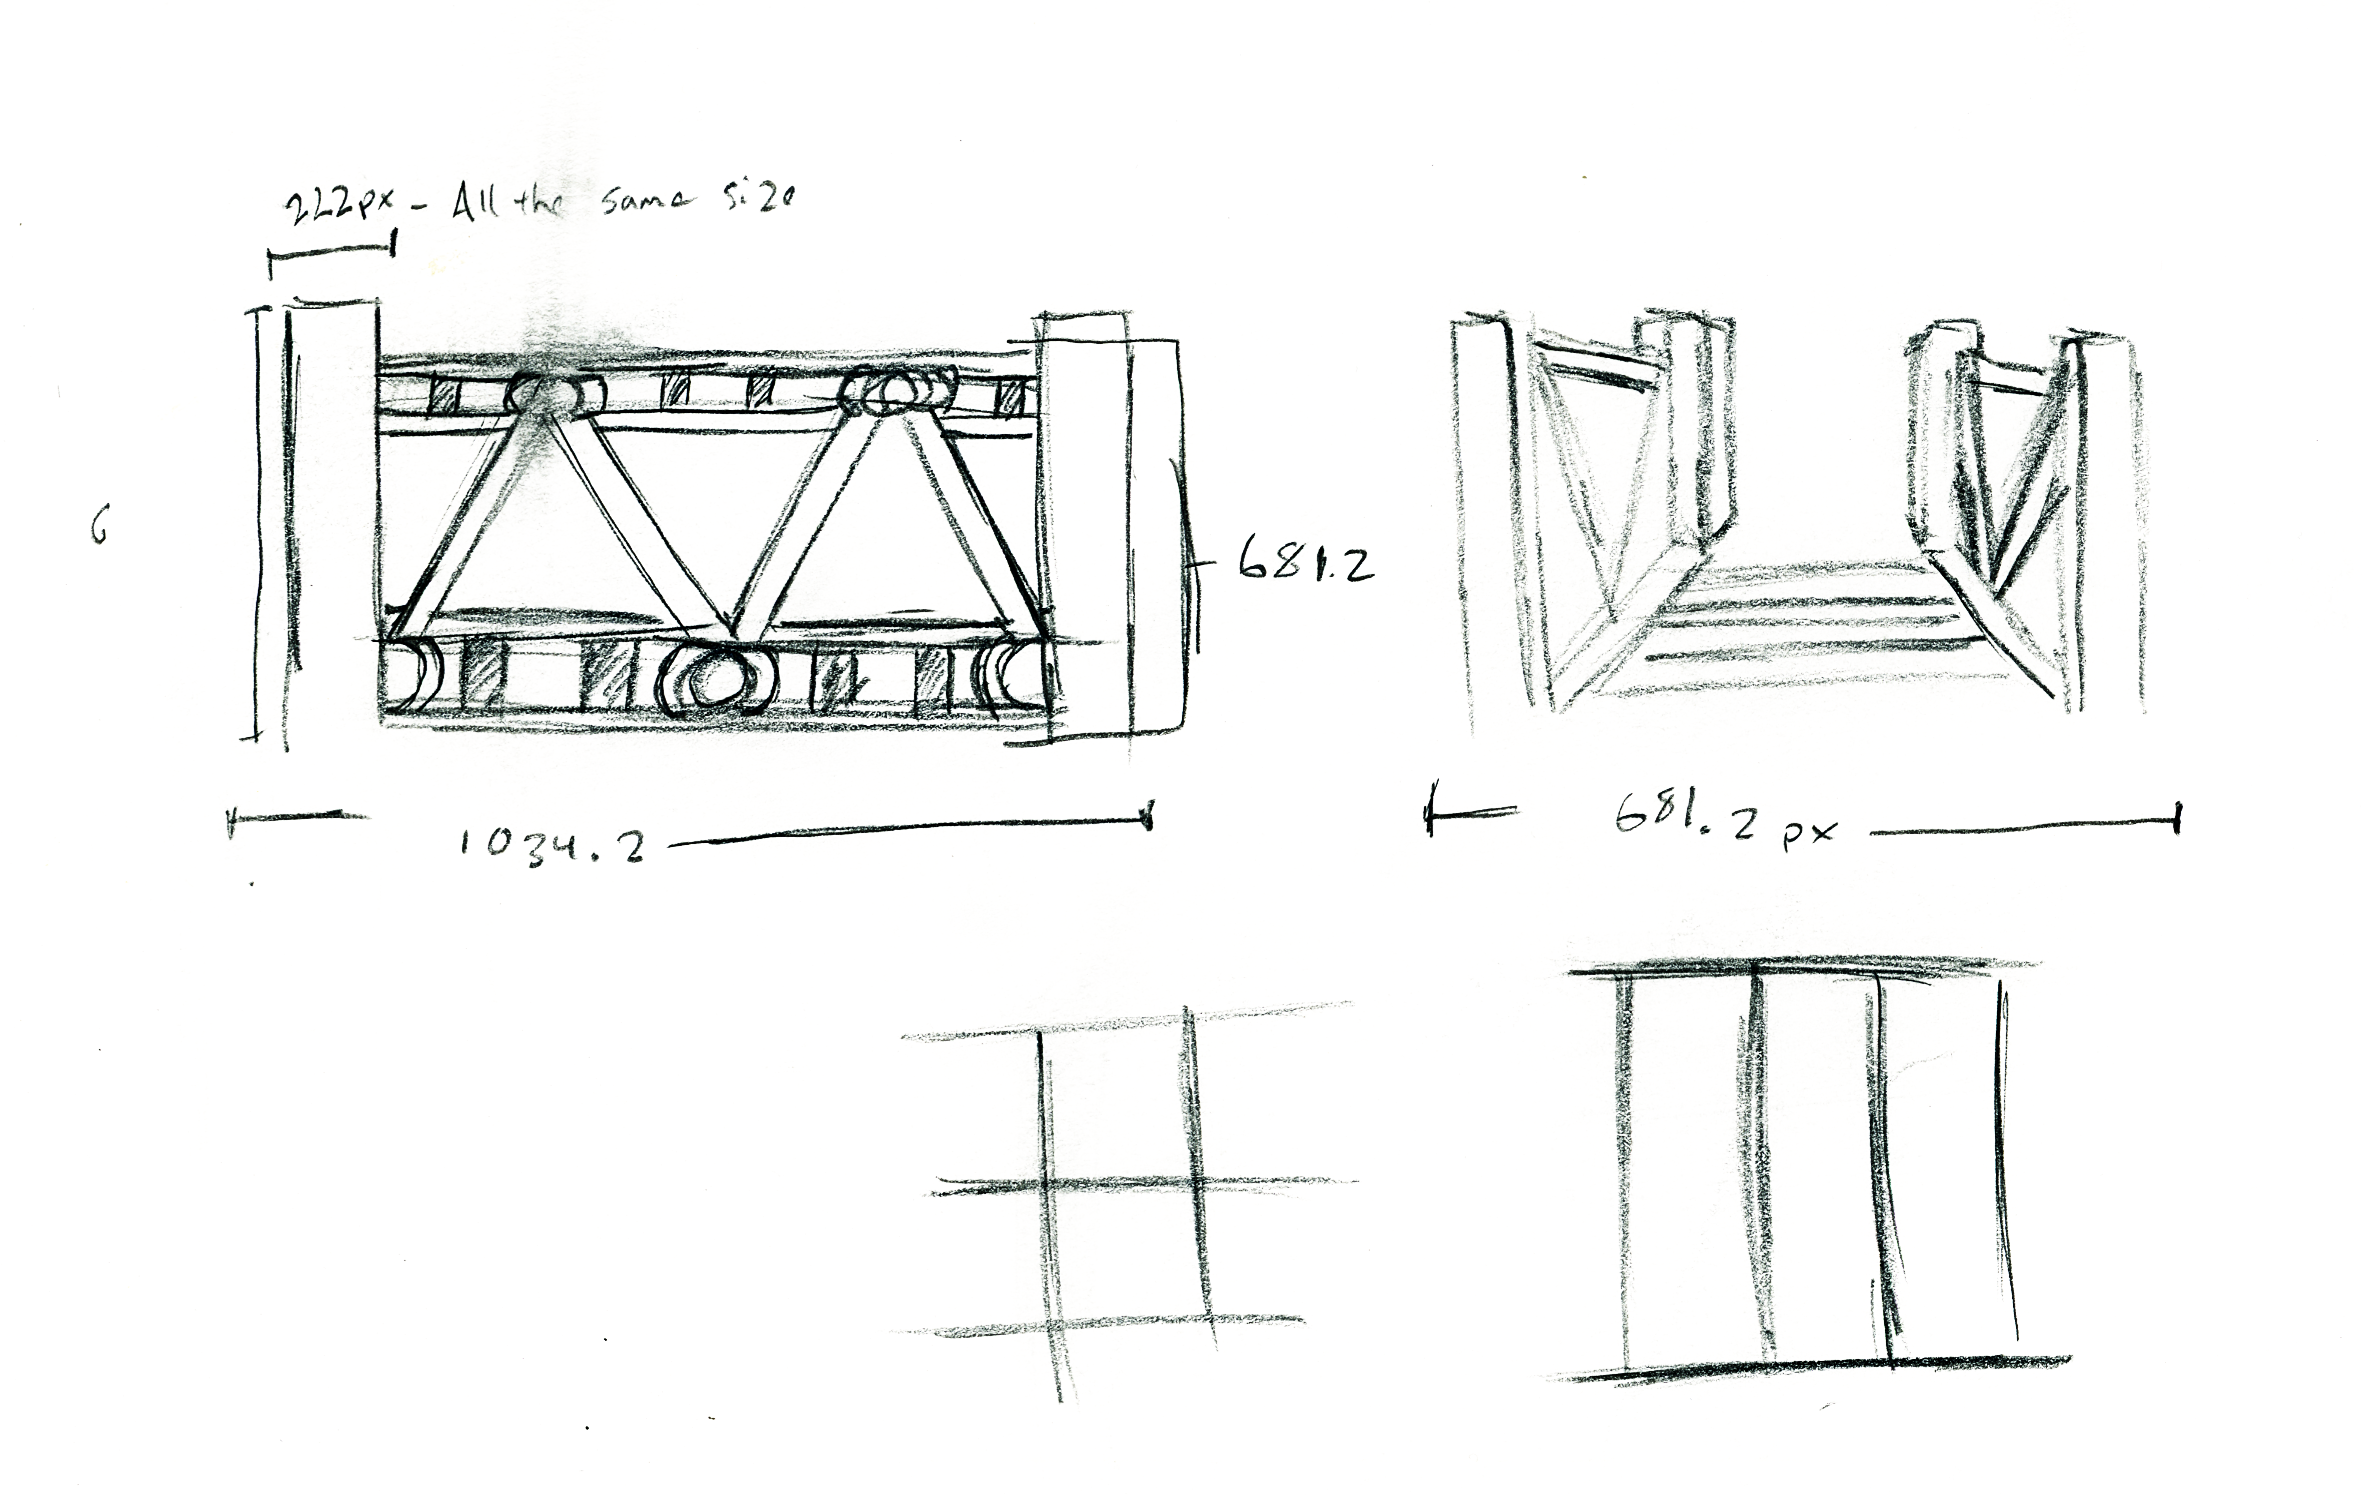 222px - All the same size
6
681.2
1034.2
681.2 px